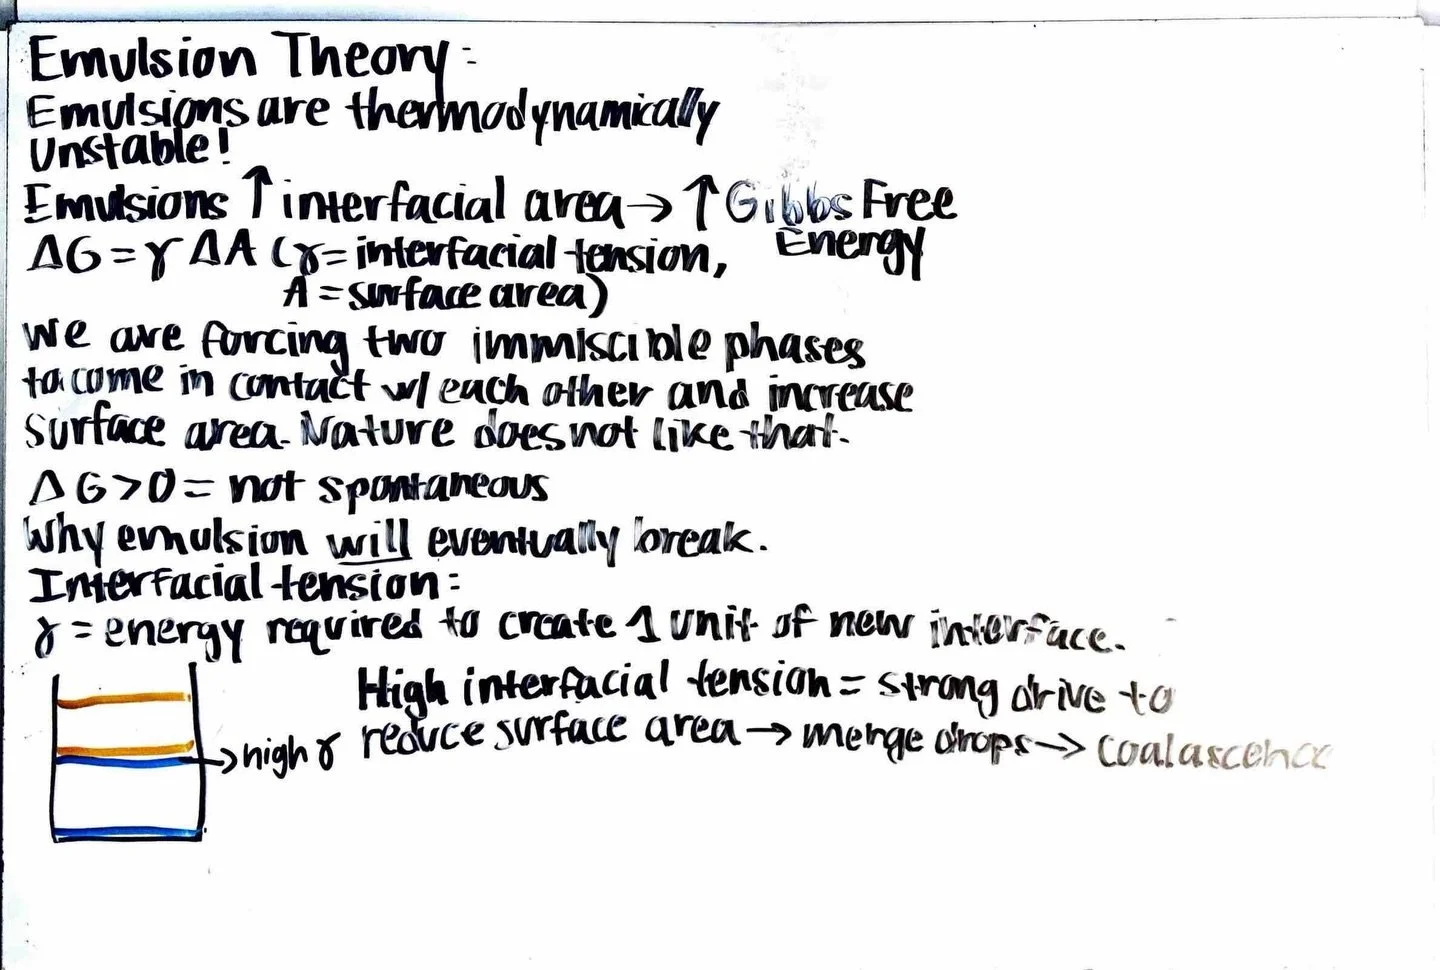 Emulsion Theory:
Emulsions are thermodynamically
Unstable!
Emulsions ↑ interfacial area → ↑ Gibbs Free
Energy
ΔG = γ ΔA (γ = interfacial tension,
A = surface area)
We are forcing two immiscible phases
to come in contact w/ each other and increase
surface area. Nature does not like that.
ΔG > 0 = not spontaneous
Why emulsion will eventually break.
Interfacial tension:
γ = energy required to create 1 unit of new interface.
High interfacial tension = strong drive to
reduce surface area → merge drops → Coalascence
→ high γ